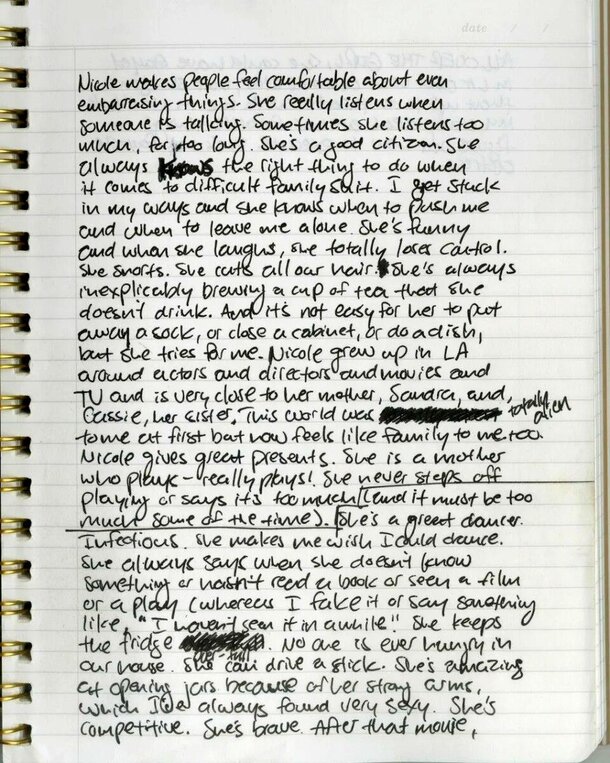 date / /
Nicole makes people feel comfortable about even
embarrassing things. She really listens when
someone is talking. Sometimes she listens too
much, for too long. She's a good citizen. She
always knows the right thing to do when
it comes to difficult family shit. I get stuck
in my ways and she knows when to push me
and when to leave me alone. She's funny
and when she laughs, she totally loses control.
She snorts. She cuts all our hair. She's always
inexplicably brewing a cup of tea that she
doesn't drink. And it's not easy for her to put
away a sock, or close a cabinet, or do a dish,
but she tries for me. Nicole grew up in LA
around actors and directors and movies and
TV and is very close to her mother, Sandra, and,
Cassie, her sister. This world was totally alien
to me at first but now feels like family to me too.
Nicole gives great presents. She is a mother
who plays - really plays! She never steps off
playing or says it's too much (and it must be too
much some of the time). She's a great dancer.
Infectious. She makes me wish I could dance.
She always says when she doesn't know
something or hasn't read a book or seen a film
or a play (whereas I fake it or say something
like, "I haven't seen it in awhile." She keeps
the fridge over-full. No one is ever hungry in
our house. She can drive a stick. She's amazing
at opening jars because of her strong arms,
which I've always found very sexy. She's
competitive. She's brave. After that movie,